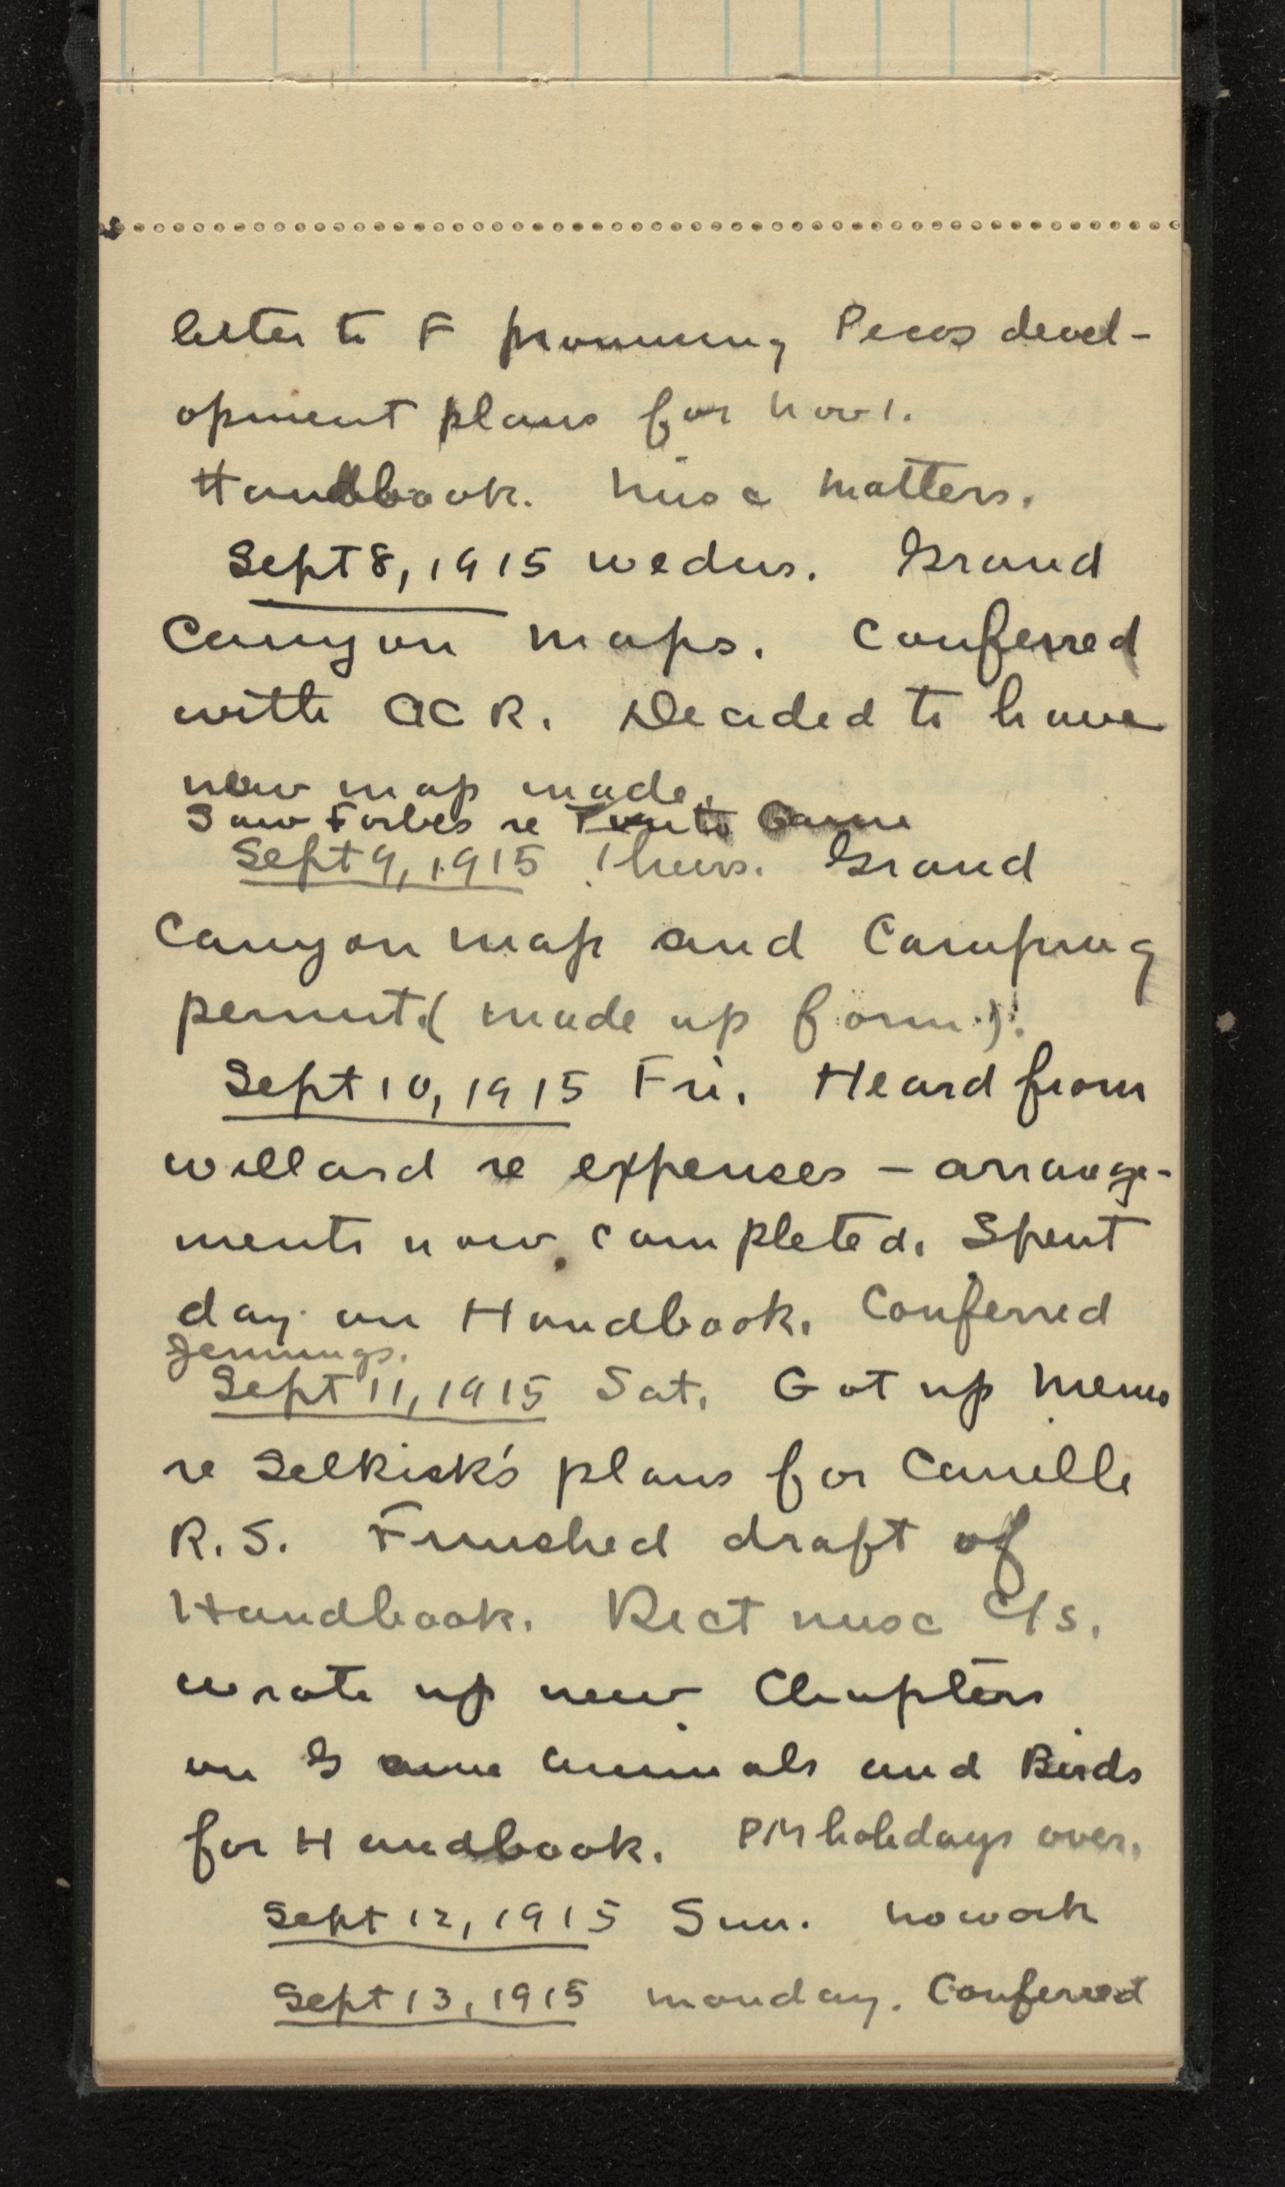 letter to F promising Pecos devel-
opment plans for Nov 1.
Handbook. Misc matters.
Sept 8, 1915 Wednes. Grand
Canyon maps. Conferred
with ACR. Decided to have
new map made.
Saw Forbes re Tonto Game
Sept 9, 1915 Thurs. Grand
Canyon map and Camping
permit. (made up form.).
Sept 10, 1915 Fri. Heard from
Willard re expenses - arrange-
ments now completed. Spent
day on Handbook. Conferred
Jennings.
Sept 11, 1915 Sat. Got up Memo
re Selkirk's plans for Canelle
R.S. Finished draft of
Handbook. Rect misc C/s.
Wrote up new Chapters
on Game Animals and Birds
for Handbook. PM holidays over.
Sept 12, 1915 Sun. No work
Sept 13, 1915 Monday. Conferred